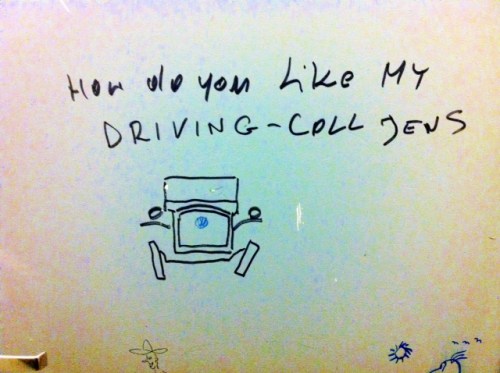 How do you Like MY
DRIVING-COLL JENS